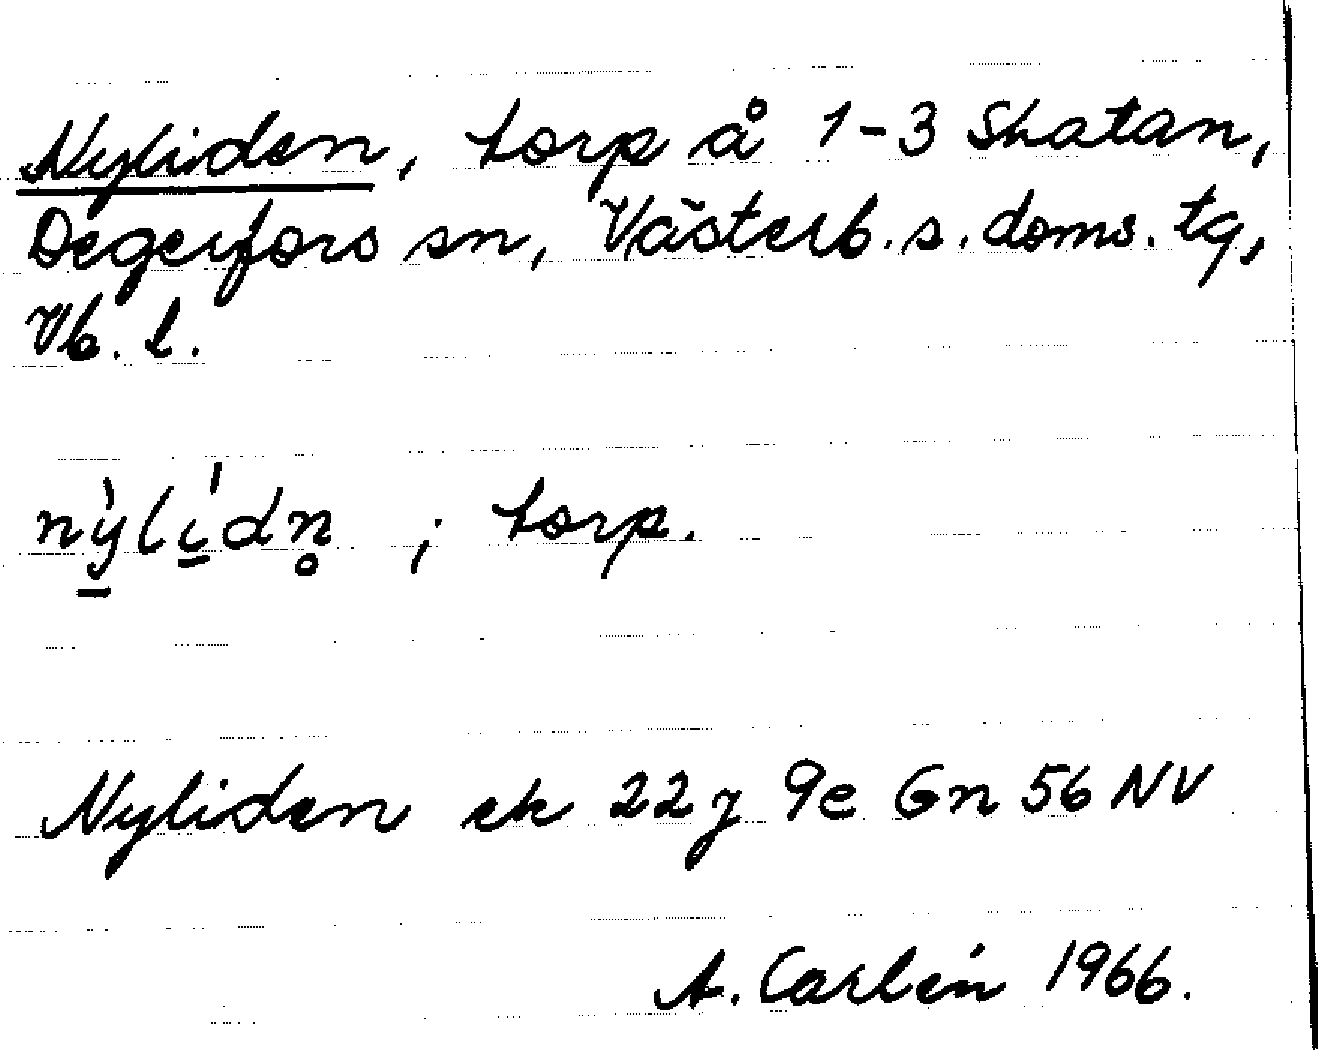 Nyliden, torp å 1-3 Skatan,
Degerfors sn, Västerb.s.doms.tg,
Vb. l.
nỳ̱lí̱dn̥ ; torp.
Nyliden ek 22 j 9e Gn 56 NV
A. Carlén 1966.